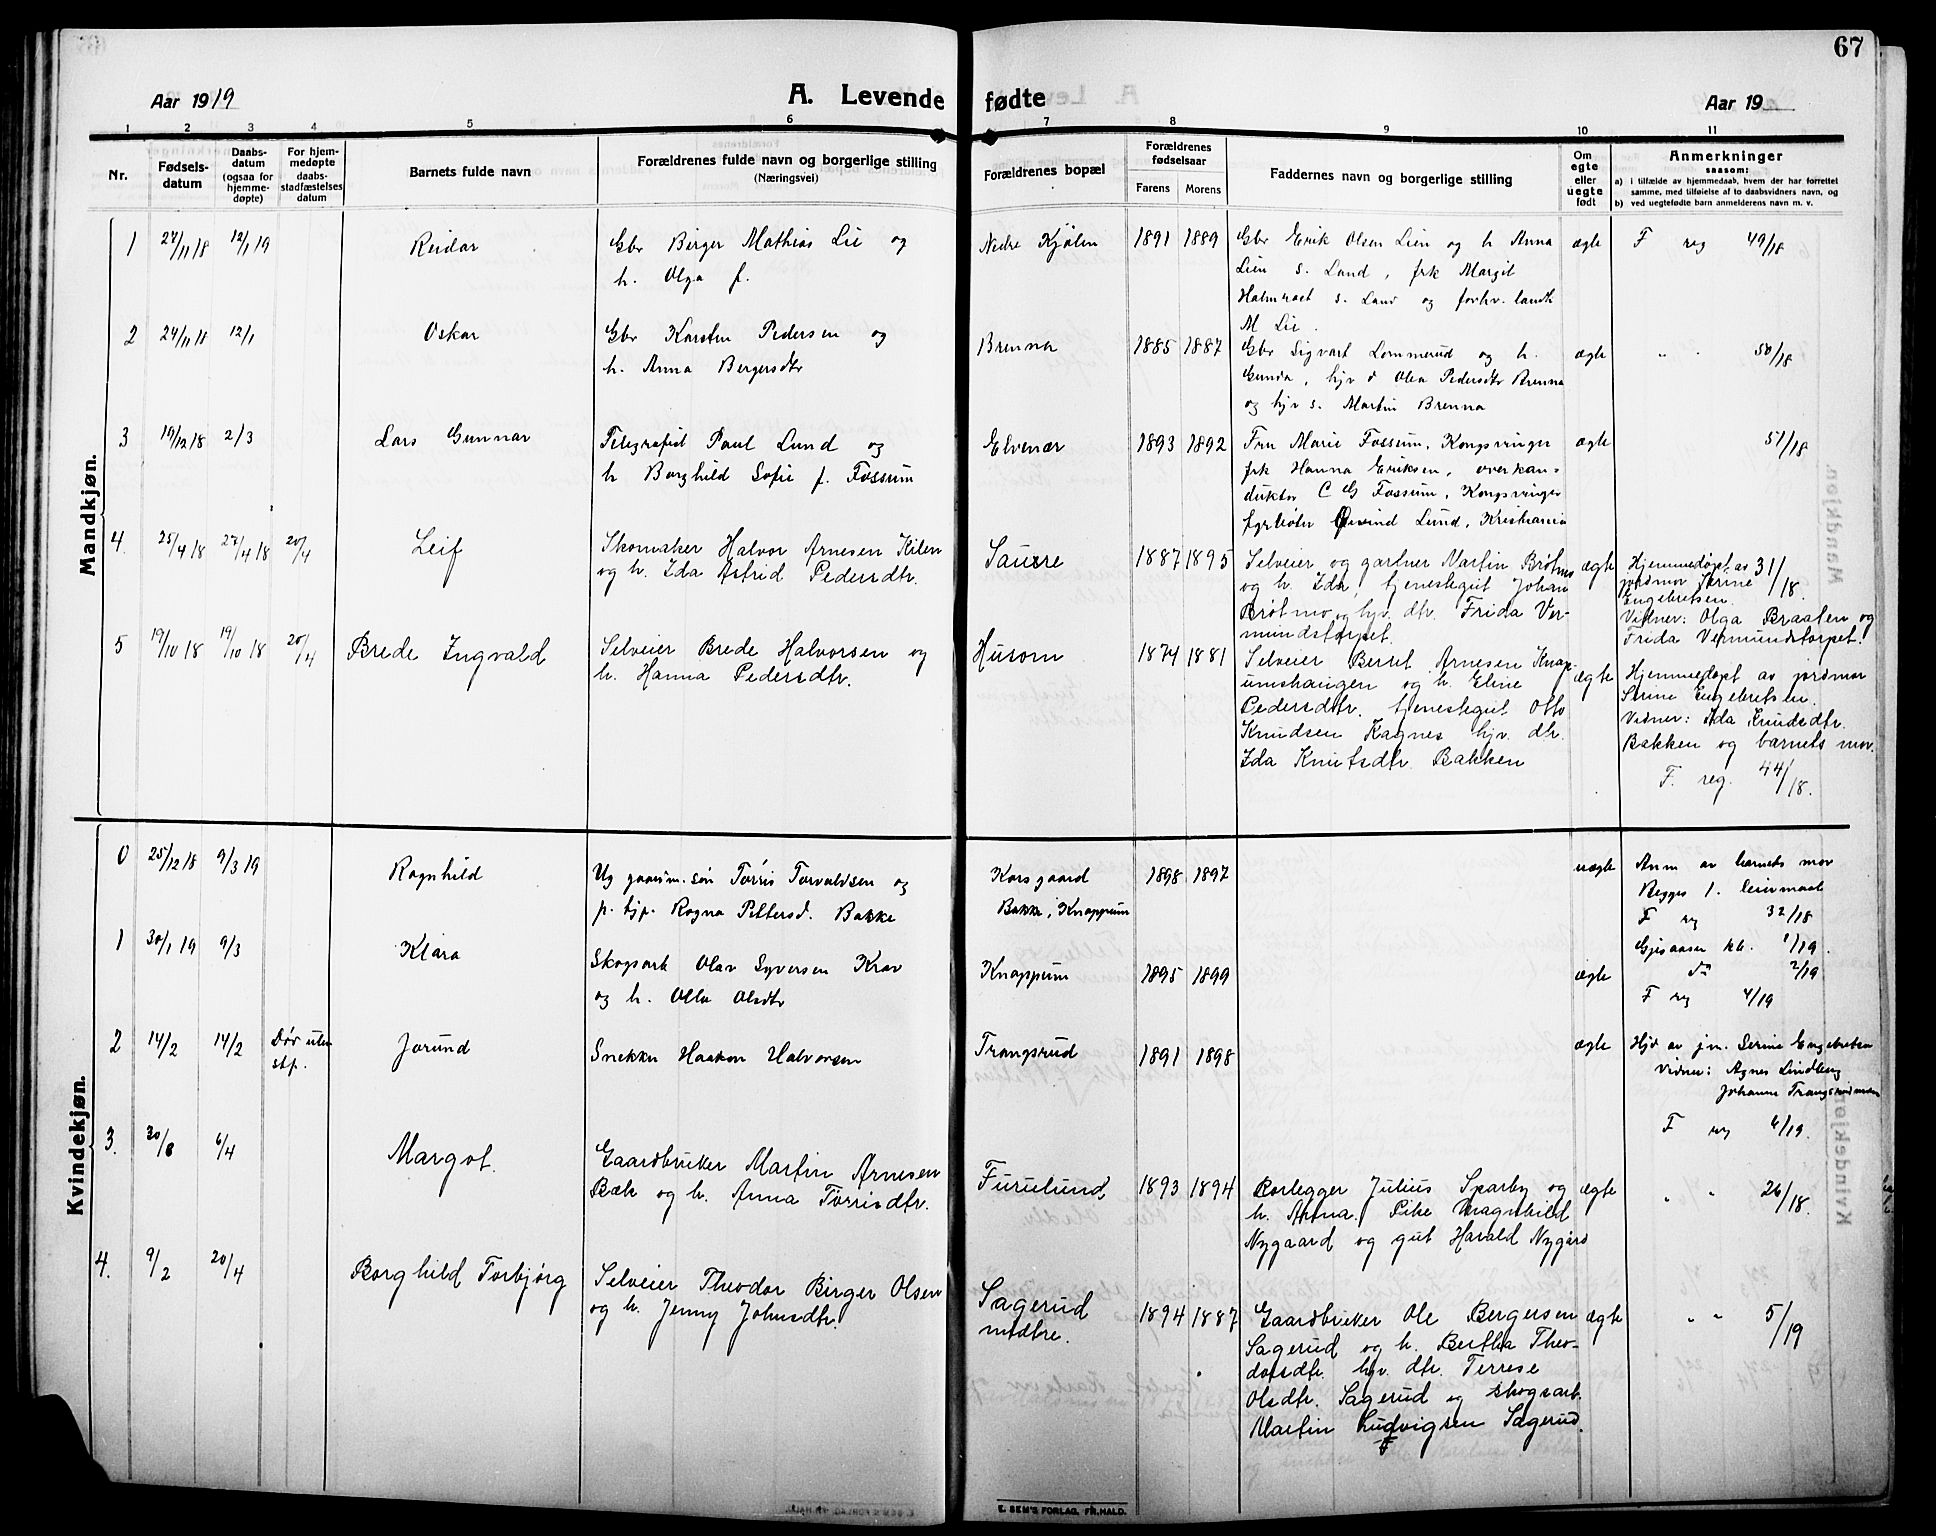 67
Aar 1919 A. Levende fødte Aar 19
1 2 3 4 5 6 7 8 9 10 11
Nr. Fødselsdatum Daabsdatum (ogsaa for hjemmedøpte) For hjemmedøpte daabsstadfæstelses datum Barnets fulde navn Forældrenes fulde navn og borgerlige stilling (Næringsvei) Forældrenes bopæl Forældrenes fødselsaar Farens Morens Faddernes navn og borgerlige stilling Om egte eller uegte født Anmerkninger saasom:
a) i tilfælde av hjemmedaab, hvem der har forrettet samme, med tilføielse af to daabsvidners navn, og
b) ved uegtefødte barn anmelderens navn m. v.
Mandkjøn.
1 27/11 18 12/1 19 Reidar Gbr Birger Mathias Lie og
h. Olga f.
Nedre Kjølen 1891 1889 Gbr Erik Olsen Lien og h Anna
Lien S. Land, frk Margit
Halmrast S. Land og forhv. landh
M Lie.
ægte F reg 49/18
2 24/11 18 12/1 Oskar Gbr Karsten Pedersen og
h. Anna Bergersdtr
Brenna 1885 1887 Gbr Sigvart Lommerud og h.
Gunda, hjv d Olea Pedersdtr Brenna
og hjv s. Martin Brenna
ægte " " 50/18
3 19/12 18 2/3 Lars Gunnar Telegrafist Paul Lund og
h Borghild Sofie f. Fossum
Elvenær 1893 1892 Fru Marie Fossum, Kongsvinger
frk Hanna Eriksen, overkon-
duktør C G Fossum, Kongsvinger
Øivind Lund, Kristiania
ægte 51/18
4. 25/4 18 27/4 18 20/4 Leif Skomaker Halvor Arnesen Kilen
og h. Ida Astrid Pedersdtr.
Sauere 1887 1895 Selveier og gartner Martin Brøtmo
og h. Ida, tjenestegut Johan
Brøtmo, og hjv. dtr. Frida Ver-
mundstorpet.
ægte Hjemmedøpt av 31/18.
jordmor Serine
Engebretsen.
Vidner: Olga Braaten og
Frida Vermundstorpet.
5 19/10 18 19/10 18 20/4 Brede Ingvald Selveier Brede Halvorsen og
h. Hanna Pedersdtr.
Husom 1874 1881 Selveier Berret Arnesen Knap-
umshaugen og h. Eline
Pedersdtr. tjenestegut Otto
Knudsen Kagnes hjv. dtr.
Ida Knutsdtr. Bakken
ægte Hjemmedøpt av jordmor
Serine Engebretsen.
Vidner: Ida Knudsdtr.
Bakken og barnets mor.
F. reg. 44/18.
Kvindekjøn.
0 25/12 18 9/3 19 Ragnhild Ug gaarm. søn Torris Torvaldsen og
p. tjp. Ragna Pettersd. Bakke
Korsgaard
Bakke, Knappum
1898 1897 uægte Anm av barnets mor
Begges 1. leiermaal
F reg 32/18
Gjesaasen kb. 1/19.
do 2/19
1 30/1 19 9/3 Klara Skogsarb Olav Syversen Krav
og h. Olla Olsdtr
Knappum 1895 1899 ægte F reg 4/19
2 14/2 14/2 Død uten
stp. Jorund Snekker Haakon Halvorsen
Trangsrud 1891 1898 ægte Hjd av jm. Serine Engebretsen
Vidner: Agnes Lindberg
Johanne Trangsrudmoen
F reg 6/19.
3. 30/8 6/4 Margot. Gaardbruker Martin Arnesen
Bæk og h. Anna Torrisdtr.
Furulund 1893 1894 Rørlegger Julius Sparby og
h. Anna. Pike Magnhild
Nygaard og gut Harald Nygård
ægte " " 26/18.
4. 9/2 20/4 Borghild Torbjørg Selveier Theodor Birger Olsen
og h. Jenny Johnsdtr.
Sagerud
nedre. 1894 1887 Gaardbruker Ole Bergersen
Sagerud og h. Bertha Theo-
dorsdtr. hjv. dtr. Terrese
Olsdtr. Sagerud og skogsarb.
Martin Ludvigsen Sagerud.
ægte " " 5/19
E. SEM'S FORLAG, FR.HALD.